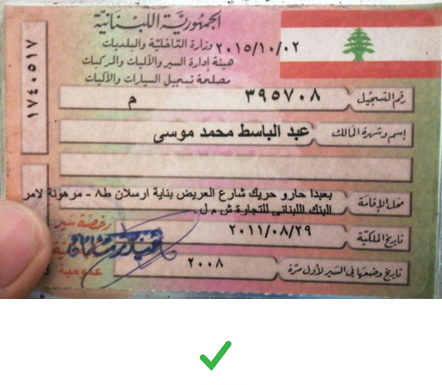 الجمهوريّة اللبنانيّة
وزارة الداخلية والبلديات ٢٠١٥/١٠/٠٢
هيئة إدارة السير والآليات والمركبات
مصلحة تسجيل السيارات والآليات
١٧٤٠٥١٧
رقم التسجيل ٣٩٥٧٠٨ م
إسم وشهرة المالك عبد الباسط محمد موسى
محل الإقامة بعبدا حارو حريك شارع العريض بناية ارسلان ط٨ - مرهونة لامر
البنك اللبناني للتجارة ش م ل .
تاريخ الملكية ٢٠١١/٠٨/٢٩
رخصة سير
عمومية
تاريخ وضعها في السير لأول مرّة ٢٠٠٨